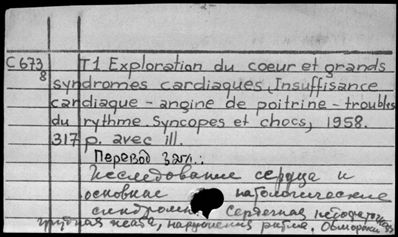 -2-
C 673
8
T1 Exploration du coeur et grands
syndromes cardiaques. Insuffisance
cardiaque - angine de poitrine - troubles
du rythme. Syncopes et chocs, 1958.
317 p. avec ill.
Перевод загл.:
Исследование сердца и
основные патологические
синдромы. Сердечная недостаточ.,
грудная жаба, нарушения ритма. Обмороки